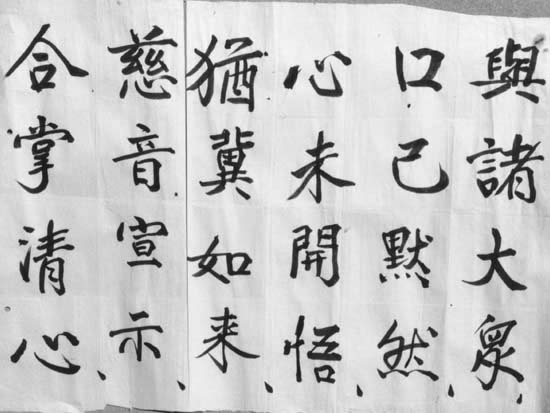 與諸大眾、
口已默然、
心未開悟、
猶冀如来、
慈音宣示、
合掌清心、